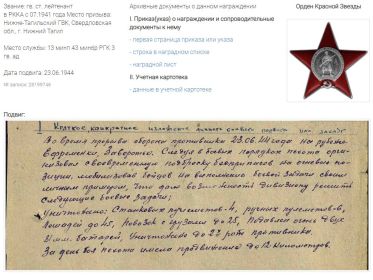 Звание: гв. ст. лейтенант
в РККА с 07.1941 года Место призыва:
Нижне-Тагильский ГВК, Свердловская
обл., г. Нижний Тагил
Место службы: 13 минп 43 минбр РГК 3
гв. ад
Дата подвига: 23.06.1944
№ записи:
Архивные документы о данном награждении:
I. Приказ(указ) о награждении и сопроводительные
документы к нему
- первая страница приказа или указа
- строка в наградном списке
- наградной лист
II. Учетная картотека
- данные в учетной картотеке
Орден Красной Звезды
Подвиг:
Краткое конкретное изложение личного боевого подвига или заслуг
Во время прорыва обороны противника 23.06.44 года на рубеже
Следуя в боевых порядках пехоты орга-
низовал своевременную подброску боеприпасов на огневые по-
зиции, мобилизовал бойцов на выполнение боевой задачи своим
личным примером, что дало возможность дивизиону решить
следующие боевые задачи:
Уничтожено: Станковых пулеметов-4, ручных пулеметов-6,
Лошадей до 45, Повозок с грузами до 25, Подавлен огонь двух
мин. батарей, Уничтожено до 2х рот противника.
За день боя пехота имела продвижение до 12 километров.